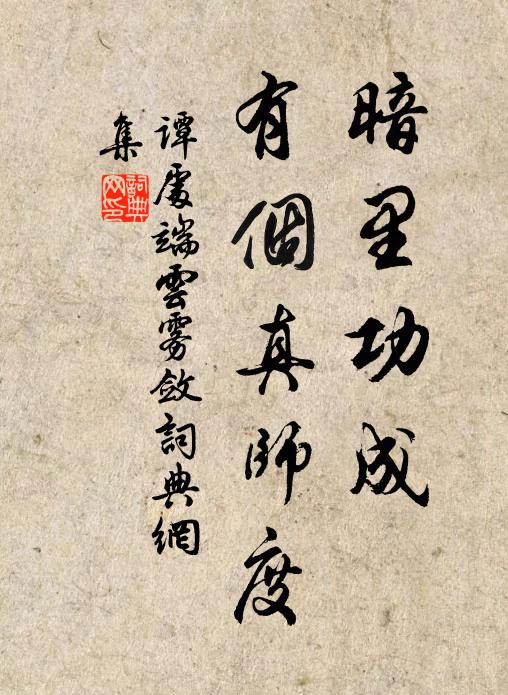 暗里功成
有個真師度
譚處端雲霧斂詞典網
集
詞典
网印